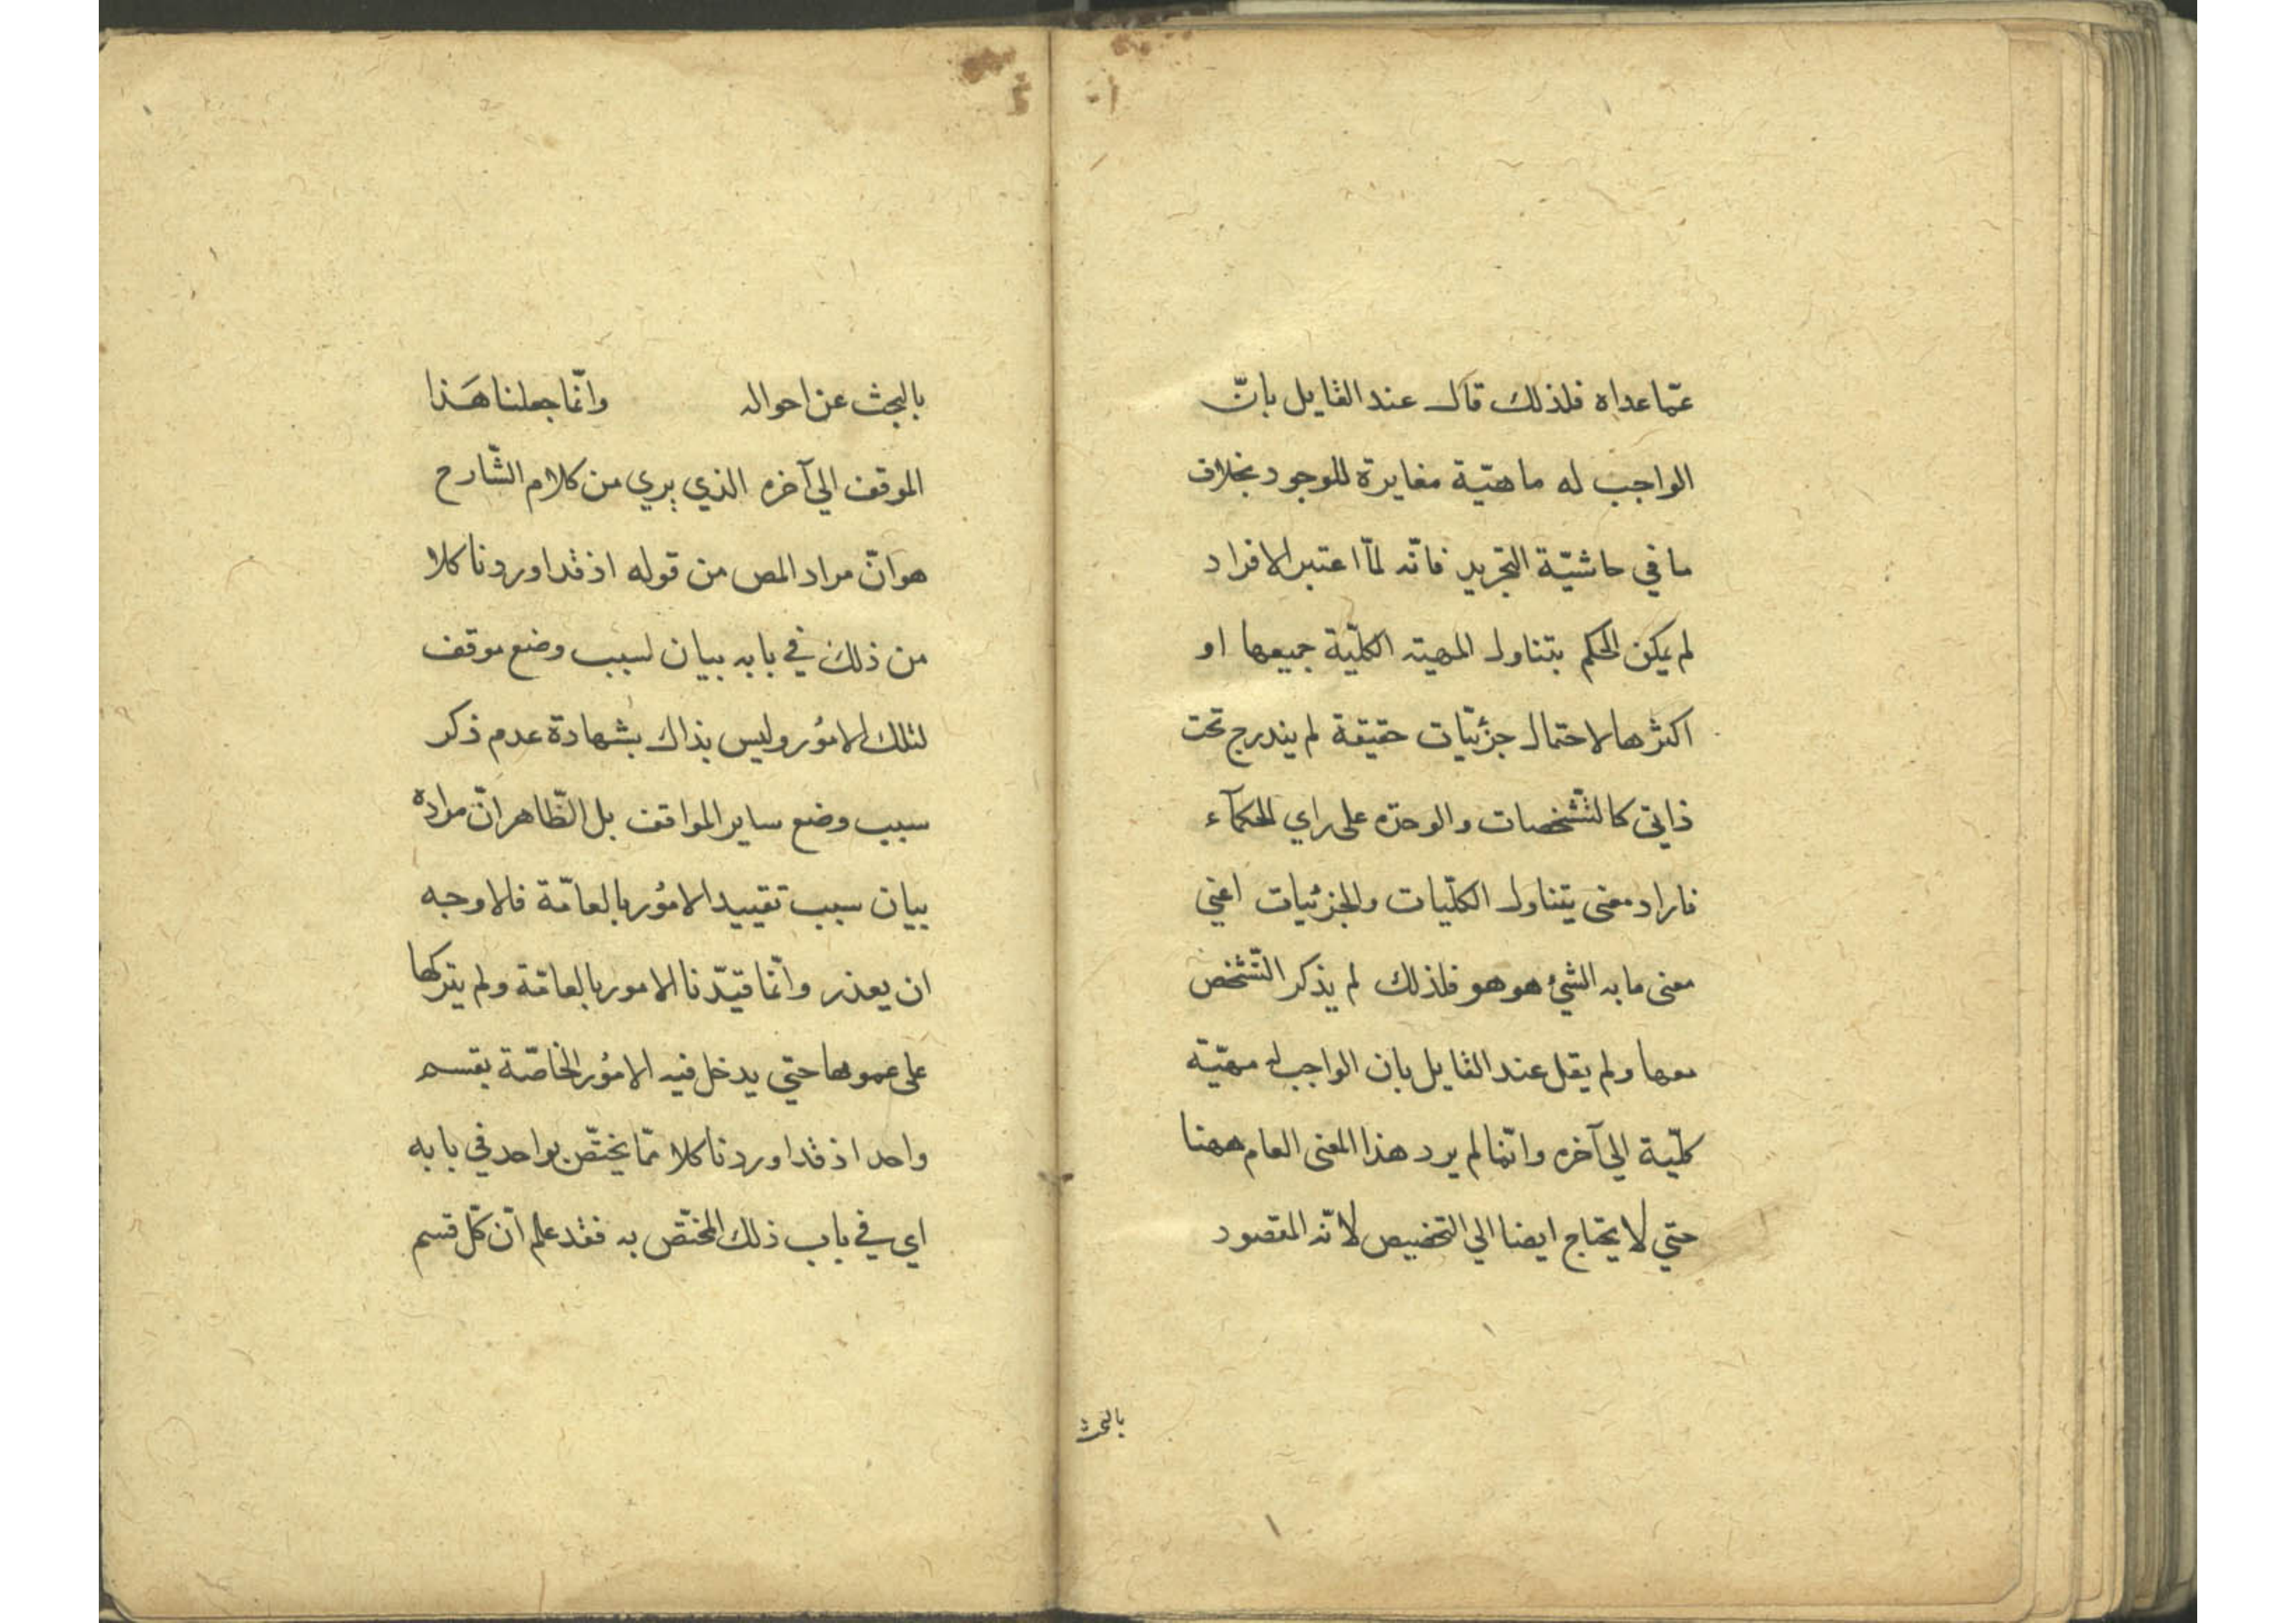 عمّا عداه فلذلك قال عند القايل بانّ
الواجب له ماهيّة مغايرة للوجود بخلاف
ما في حاشيّة التجريد فانّه لمّا اعتبر الافراد
لم يكن الحكم بتناول المهية الكلّية جميعها او
اكثرها لاحتمال جزئيّات حقيقة لم يندرج تحت
ذاتي كالتّشخصات والوحدة على راي الحكمآء
فاراد معنى يتناول الكلّيات والجزئيات اعني
معنى ما به الشيئ هو هو فلذلك لم يذكر التّشخص
معها ولم يقل عند القايل بان الواجب له مهيّة
كلّية الي آخره وانّما لم يرد هذا المعنى العام ههنا
حتي لا يحتاج ايضا الي التخصيص لانّه المقصود
بالبحث
بالبحث عن احواله وانّما جعلنا هَذا
الموقف الي آخره الذي يري من كلام الشّارح
هو انّ مراد المص من قوله اذ قد اوردنا كلا
من ذلك في بابه بيان لسبب وضع موقف
لتلك الامُور وليس بذاك بشهادة عدم ذكر
سبب وضع ساير المواقف بل الظّاهر انّ مراده
بيان سبب تقييد الامُور بالعامّة فالاوجه
ان يعذر وانّما قيّدنا الامور بالعامّة ولم يتركها
على عمومها حتي يدخل فيه الامُور الخاصّة بقسم
واحد اذ قد اوردنا كلا ممّا يختصّ بواحد في بابه
اي في باب ذلك المختصّ به فقد علم انّ كلّ قسم